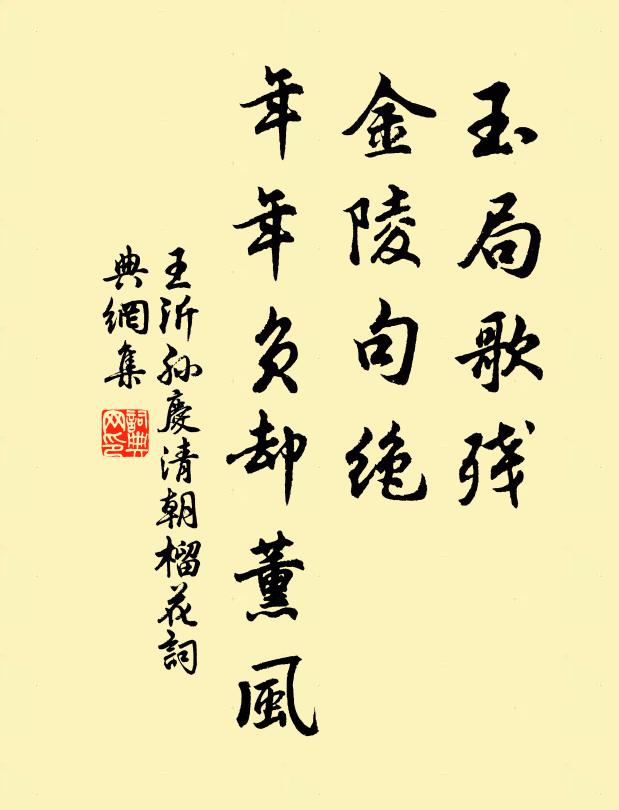 玉局歌残
金陵句绝
年年负却薰風
王沂孙慶清朝榴花詞
典網集
詞典網印